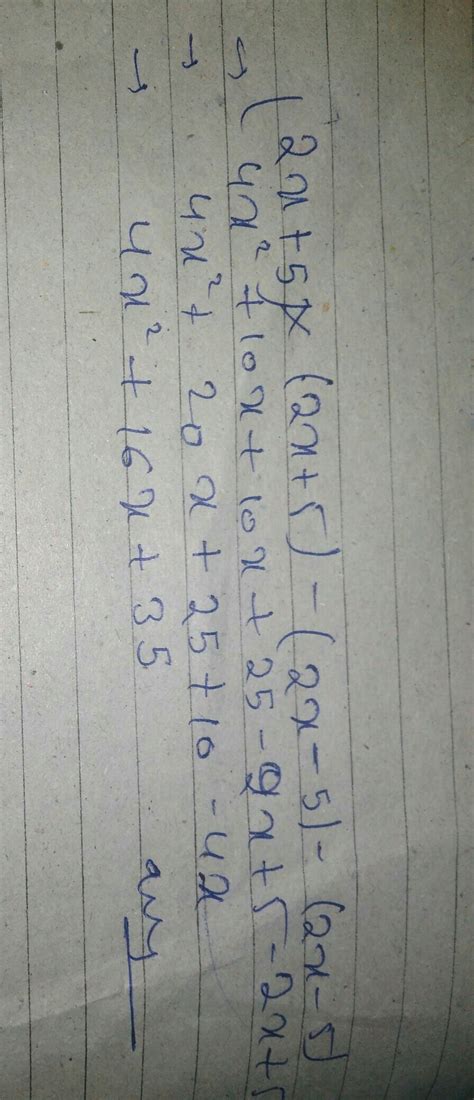 (2x+5)× (2x+5) - (2x-5) - (2x-5)
→ 4x² + 10x + 10x + 25 - 2x + 5 - 2x + 5
→ 4x² + 20x + 25 + 10 - 4x
→ 4x² + 16x + 35